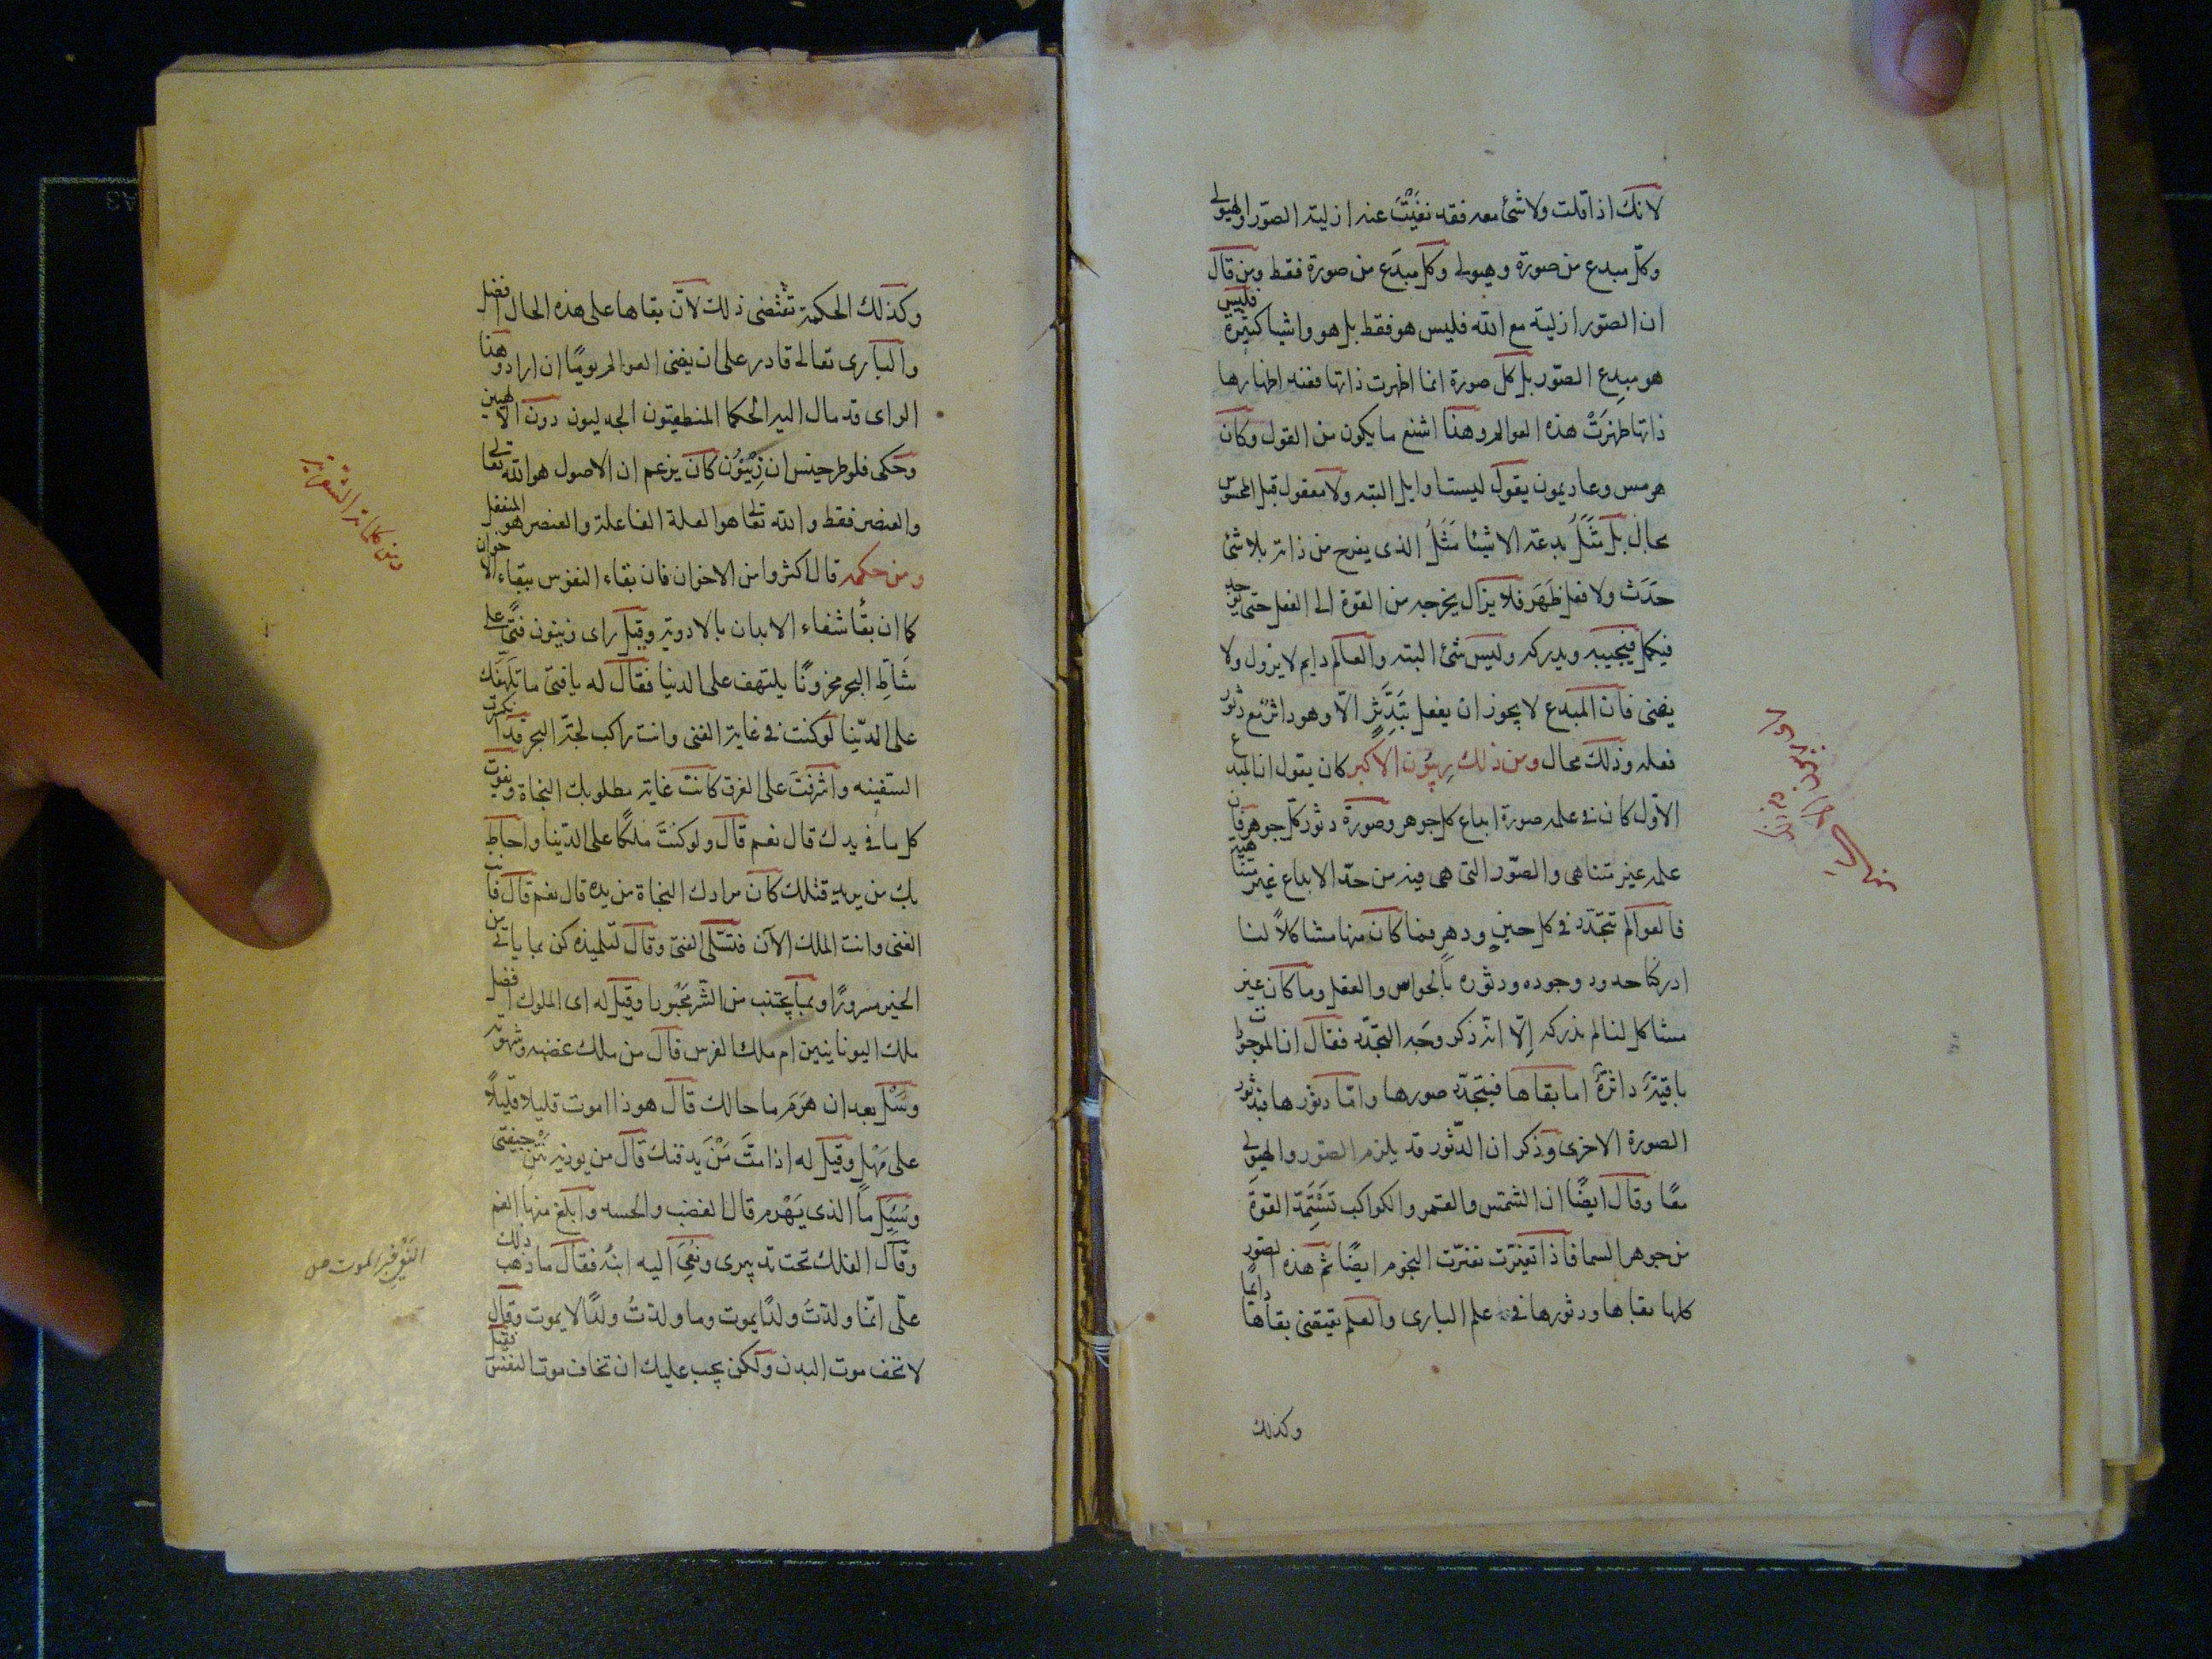 لانك اذا قلت ولا شئ معه فقد نفيْتَ عنه ازلية الصّور والهيولى
وكلّ مبدع من صورة وهيولى وكل مبدَع من صورة فقط ومن قال
ان الصّور ازلية مع الله فليس هو فقط بل هو واشيا كثيرة فليس
هو مبدِع الصّور بل كل صورة انما اظهرت ذاتها فعند اظهارها
ذاتها ظهرَتْ هذه العوالم وهذا اشنع ما يكون من القول وكان
هرمس وعاديمون يقول ليست اوايل البته ولا معقول قبل المحسوس
بحال بل مَثَلُ بدعة الاشيئا مَثَلُ الذى يفرح من ذاته بلا شئ
حدَث ولا فعل ظَهَر فلا يزال يخرجه من القوة الى الفعل حتى يوجد
فيكمل فيجيبه ويدركه وليس شئ البته والعالم دايم لا يزول ولا
يفنى فان المبدع لا يجوز ان يفعل بَتَدَثِّرٍ الّا وهو داثرٌ مع دثور
فعله وذلك محال ومن ذلك زينون الاكبر كان يقول ان المبدع
الاوّل كان فى علمه صورة ابداع كل جوهر وصورة دثور كلّ جوهر فان
علمه غير متناهى والصّور التى هى فيه من حدّ الابداع غير متناهية
فالعوالم تتجدّد فى كل حينٍ ودهر فما كان منها مشاكلًا لنا
ادركنا حدود وجوده ودثوره بالحواس والعقل وما كان غير
مشاكل لنا لم ندركه اِلّا انّه ذكر وجَه التجدّد فقال ان الموجودات
باقيةٌ داثرةٌ اما بقاها فبتجدّد صورها وامّا دثورها فبدثور
الصورة الاخرى وذكر ان الدّثور قد يلزم الصّور والهيولى
معًا وقال ايضًا ان الشمس والقمر والكواكب تَسْتَمِدّ القوّة
من جوهر السما فاذا تغيّرت تغيّرت النجوم ايضًا ثم هذه الصّور
كلها بقاها ودثورها فى علم البارى والعلم يقتضى بقاها دايمًا
وكذلك
راى زينون الاكبر
وكذلك الحكمة تقتضى ذلك لانّ بقاها على هذه الحال افضل
والبارى تعالى قادر على ان يفنى العوالم يومًا ان اراد وهذا
الراى قد مال اليه الحكما المنطقيّون الجدليون دون الالهيين
وحكى فلوطرخيس ان زينون كان يزعم ان الاصول هو الله تعالى
والعنصر فقط والله تعالى هو العلة الفاعلة والعنصر هو المنفعل
ومن حكمه قال اكثروا من الاخوان فان بقاء النفوس ببقاء الاخوان
كما ان بقأ شفاء الابدان بالادوية وقيل راى زينون فتًى على
شاطِ البحر محزونًا يلتهف على الدنيا فقال له يا فتى ما تلهفك
على الدّنيا لو كنت فى غاية الغنى وانت راكب لجّة البحر قد انكسرت
السّفينه واشرفتَ على الغرق كانت غاية مطلوبك النجاة ويفوت
كل ما فى يدك قال نعم قال ولو كنتَ ملكًا على الدّنيا واحاط
بك من يريد قتلك كان مرادك النجاة من يده قال نعم قال فانت
الغنى وانت الملك الآن فتسَلّى الفتى وقال لتلميذه كن بما ياتى من
الخير مسرورًا وبما يجتنب من الشّر محبورا وقيل له اى الملوك افضل
ملك اليونانيين ام ملك الفرس قال من ملك غضبه وشهوته
وسُئل بعد ان هَرَم ما حالك قال هوذا اموت قليلا قليلًا
على مَهْل وقيل له اذا متَّ مَنْ يدفنك قال من يوذيه نَتنُ جيفتى
وسُيل ما الذى يَهْرم قال الغضب والحسد وابلغ منها الغم
وقال الفلك تحت تدبيرى ونُعِىَ اليه ابنُه فقال ما ذهب ذلك
علّى انّما ولدتُ ولدًا يموت وما ولدتُ ولدًا لا يموت وقال
لا تخف موت البدن ولكن يجب عليك ان تخاف موت النفس فقيل
النعى خبر الموت